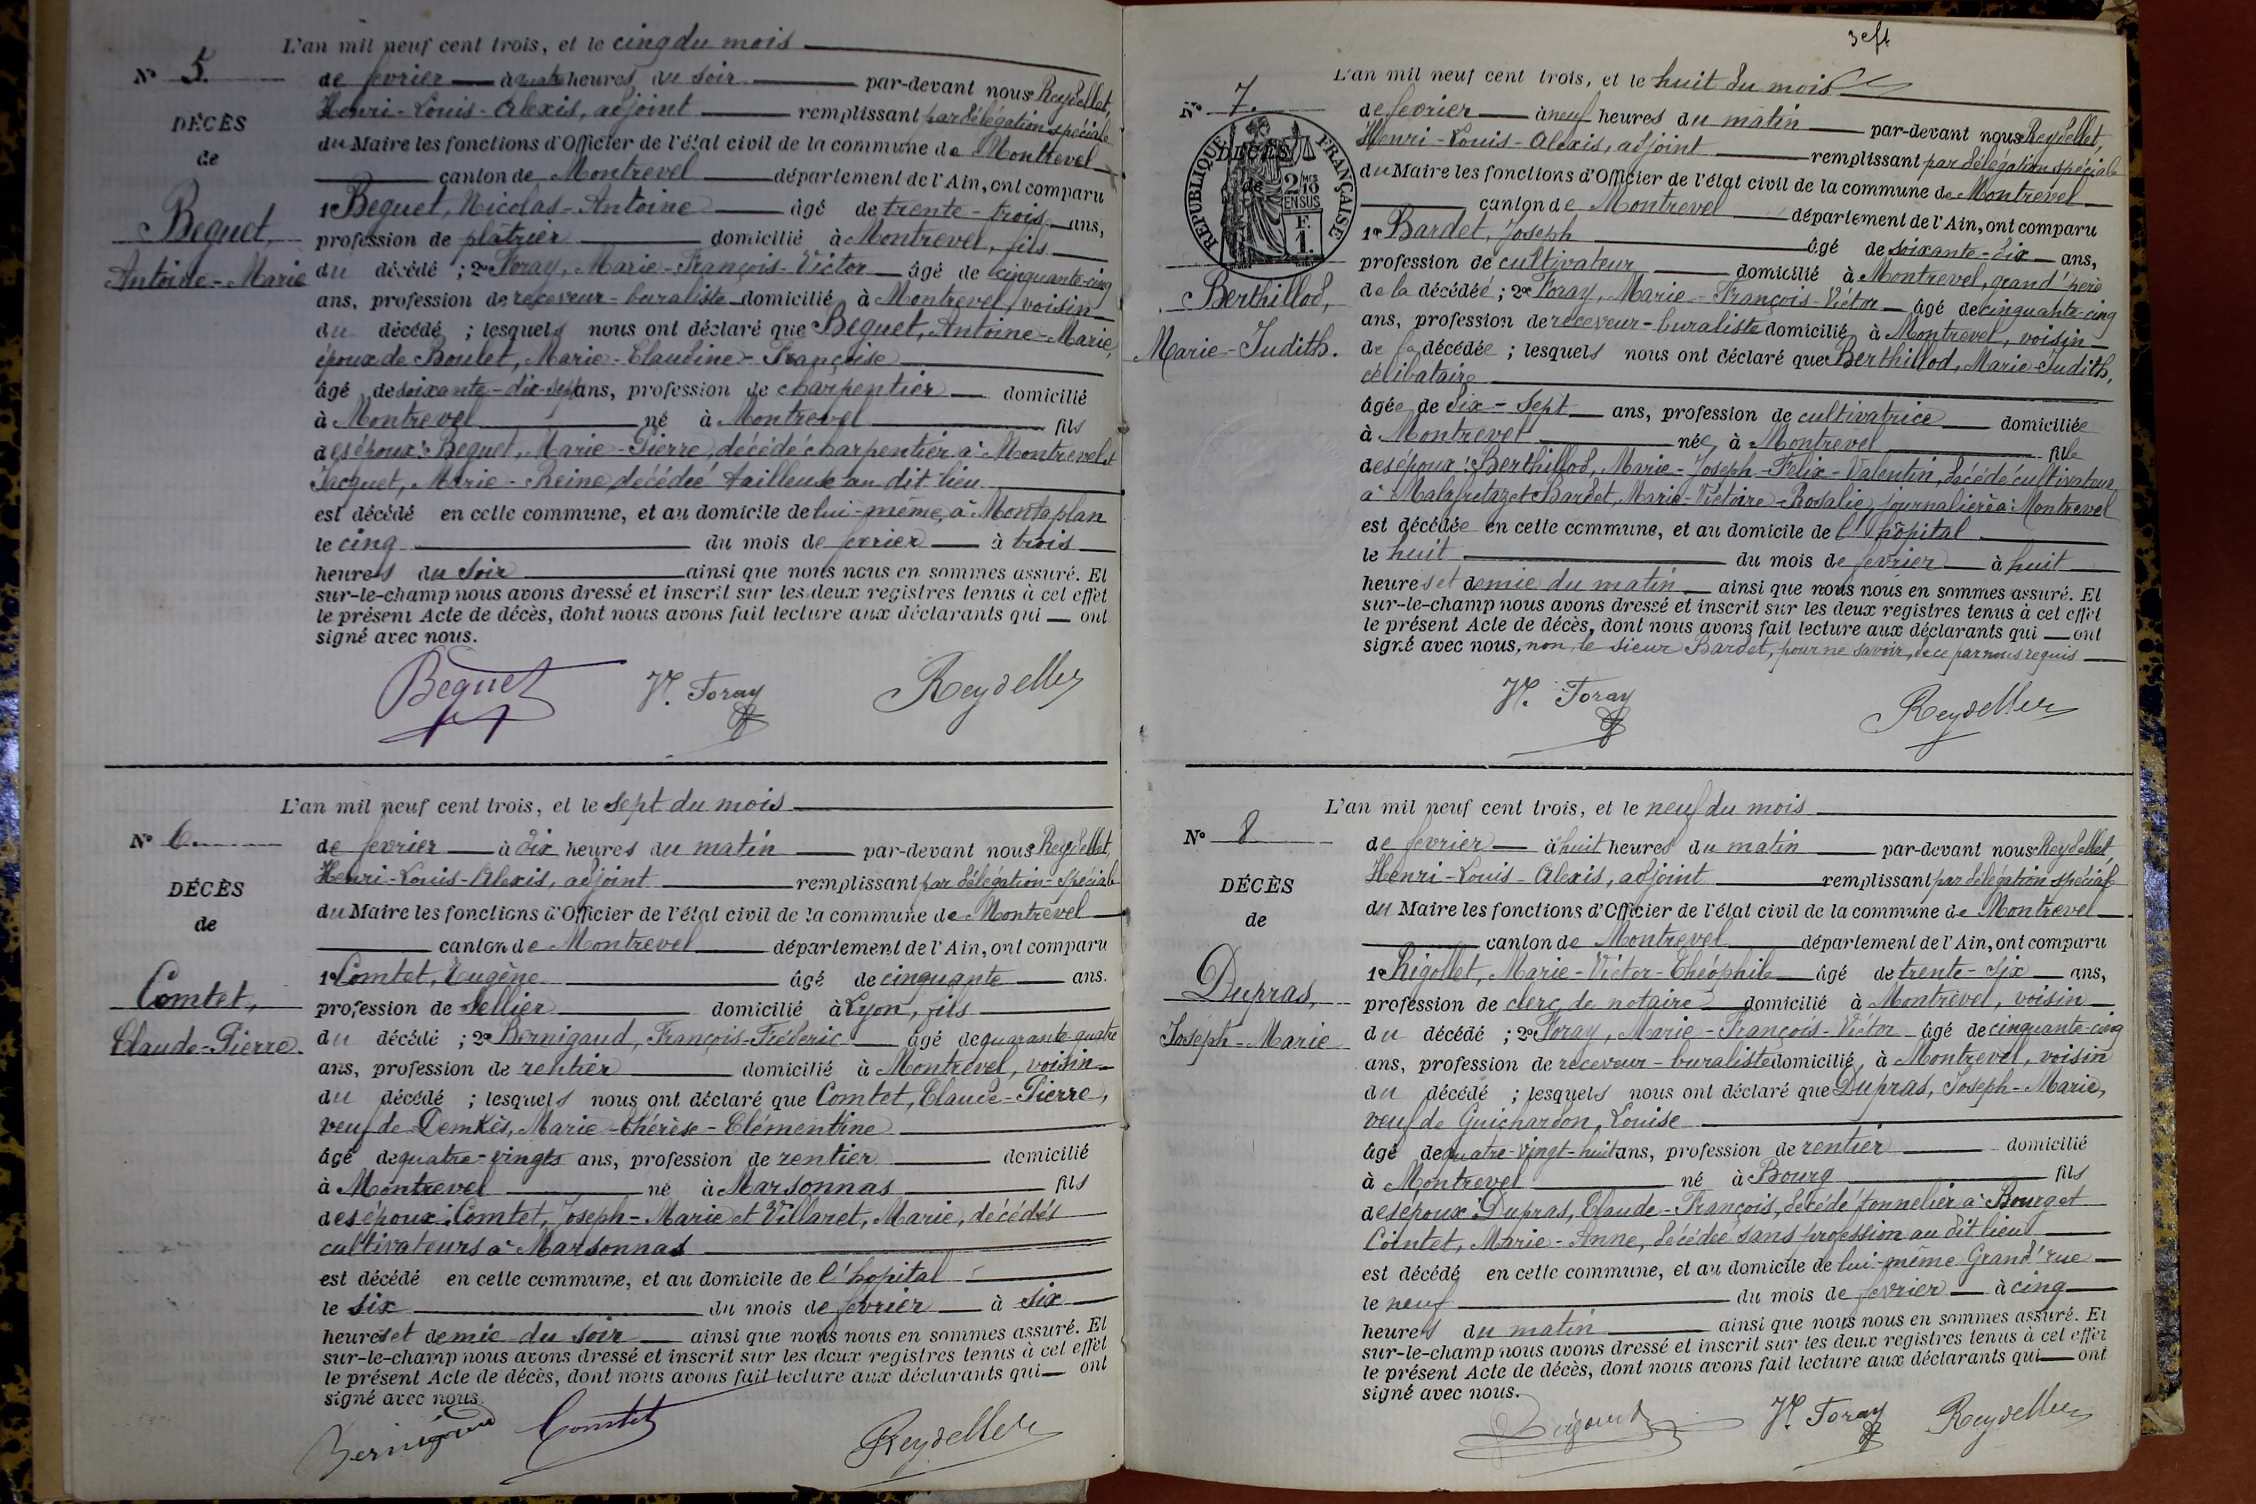 L'an mil neuf cent trois, et le cinq du mois
N° 5.
de fevrier à quatre heures du soir par-devant nous Reydellet,
Henri-Louis-Alexis, adjoint remplissant par délégation spéciale
DÉCÈS
du Maire les fonctions d'Officier de l'état civil de la commune de Montrevel
de
canton de Montrevel département de l'Ain, ont comparu
1° Beguet, Nicolas-Antoine âgé de trente-trois ans,
Beguet,
profession de plâtrier domicilié à Montrevel, fils
Antoine-Marie
du décédé ; 2° Foray, Marie-François-Victor âgé de cinquante-cinq
ans, profession de receveur-buraliste domicilié à Montrevel, voisin
du décédé ; lesquels nous ont déclaré que Beguet, Antoine-Marie,
époux de Boulet, Marie-Claudine-Françoise
âgé de soixante-dix-sept ans, profession de charpentier domicilié
à Montrevel né à Montrevel fils
des époux : Beguet, Marie-Pierre, décédé charpentier à Montrevel et
Jacquet, Marie-Reine, décédée tailleuse au dit lieu
est décédé en cette commune, et au domicile de lui-même, à Montaplan
le cinq du mois de fevrier à trois
heures du soir ainsi que nous nous en sommes assuré. Et
sur-le-champ nous avons dressé et inscrit sur les deux registres tenus à cet effet
le présent Acte de décès, dont nous avons fait lecture aux déclarants qui ont
signé avec nous.
Beguet Vr. Foray Reydellet
L'an mil neuf cent trois, et le sept du mois
N° 6.
de fevrier à dix heures du matin par-devant nous Reydellet,
Henri-Louis-Alexis, adjoint remplissant par délégation spéciale
DÉCÈS
du Maire les fonctions d'Officier de l'état civil de la commune de Montrevel
de
canton de Montrevel département de l'Ain, ont comparu
1° Comtet, Eugène âgé de cinquante ans.
Comtet,
profession de sellier domicilié à Lyon, fils
Claude-Pierre.
du décédé ; 2° Bernigaud, François-Fréderic âgé de quarante-quatre
ans, profession de rentier domicilié à Montrevel, voisin
du décédé ; lesquels nous ont déclaré que Comtet, Claude-Pierre,
veuf de Demkès, Marie-Thérèse-Clémentine
âgé de quatre-vingts ans, profession de rentier domicilié
à Montrevel né à Marsonnas fils
des époux : Comtet, Joseph-Marie et Villaret, Marie, décédés
cultivateurs à Marsonnas
est décédé en cette commune, et au domicile de l'hopital
le six du mois de fevrier à six
heures et demie du soir ainsi que nous nous en sommes assuré. Et
sur-le-champ nous avons dressé et inscrit sur les deux registres tenus à cet effet
le présent Acte de décès, dont nous avons fait lecture aux déclarants qui ont
signé avec nous.
Bernigaud Comtet Reydellet
3e ft
L'an mil neuf cent trois, et le huit du mois
N° 7.
de fevrier à neuf heures du matin par-devant nous Reydellet,
Henri-Louis-Alexis, adjoint remplissant par délégation spéciale
DÉCÈS
du Maire les fonctions d'Officier de l'état civil de la commune de Montrevel
de
REPUBLIQUE FRANÇAISE
2/10 EN SUS
F. 1.
canton de Montrevel département de l'Ain, ont comparu
1° Bardet, Joseph âgé de soixante-dix ans,
profession de cultivateur domicilié à Montrevel, grand'père
Berthillod,
de la décédée ; 2° Foray, Marie-François-Victor âgé de cinquante-cinq
ans, profession de receveur-buraliste domicilié à Montrevel, voisin
Marie-Judith.
de la décédée ; lesquels nous ont déclaré que Berthillod, Marie-Judith,
célibataire
âgée de dix-sept ans, profession de cultivatrice domiciliée
à Montrevel née à Montrevel fille
des époux : Berthillod, Marie-Joseph-Felix-Valentin, décédé cultivateur
à Malafretaz et Bardet, Marie-Victoire-Rosalie, journalière à Montrevel
est décédée en cette commune, et au domicile de l'hôpital
le huit du mois de fevrier à huit
heures et demie du matin ainsi que nous nous en sommes assuré. Et
sur-le-champ nous avons dressé et inscrit sur les deux registres tenus à cet effet
le présent Acte de décès, dont nous avons fait lecture aux déclarants qui ont
signé avec nous, non le sieur Bardet, pour ne savoir, de ce par nous requis
Vr. Foray Reydellet
L'an mil neuf cent trois, et le neuf du mois
N° 8
de fevrier à huit heures du matin par-devant nous Reydellet
Henri-Louis-Alexis, adjoint remplissant par délégation spéciale
DÉCÈS
du Maire les fonctions d'Officier de l'état civil de la commune de Montrevel
de
canton de Montrevel département de l'Ain, ont comparu
1° Rigollet, Marie-Victor-Théophile âgé de trente-six ans,
Dupras,
profession de clerc de notaire domicilié à Montrevel, voisin
Joseph-Marie
du décédé ; 2° Foray, Marie-François-Victor âgé de cinquante-cinq
ans, profession de receveur-buraliste domicilié à Montrevel, voisin
du décédé ; lesquels nous ont déclaré que Dupras, Joseph-Marie,
veuf de Guichardon, Louise
âgé de quatre-vingt-huit ans, profession de rentier domicilié
à Montrevel né à Bourg fils
des époux : Dupras, Claude-François, décédé tonnelier à Bourg et
Cointet, Marie-Anne, décédée sans profession au dit lieu
est décédé en cette commune, et au domicile de lui-même Grand'rue
le neuf du mois de fevrier à cinq
heures du matin ainsi que nous nous en sommes assuré. Et
sur-le-champ nous avons dressé et inscrit sur les deux registres tenus à cet effet
le présent Acte de décès, dont nous avons fait lecture aux déclarants qui ont
signé avec nous.
Vr. Foray Reydellet